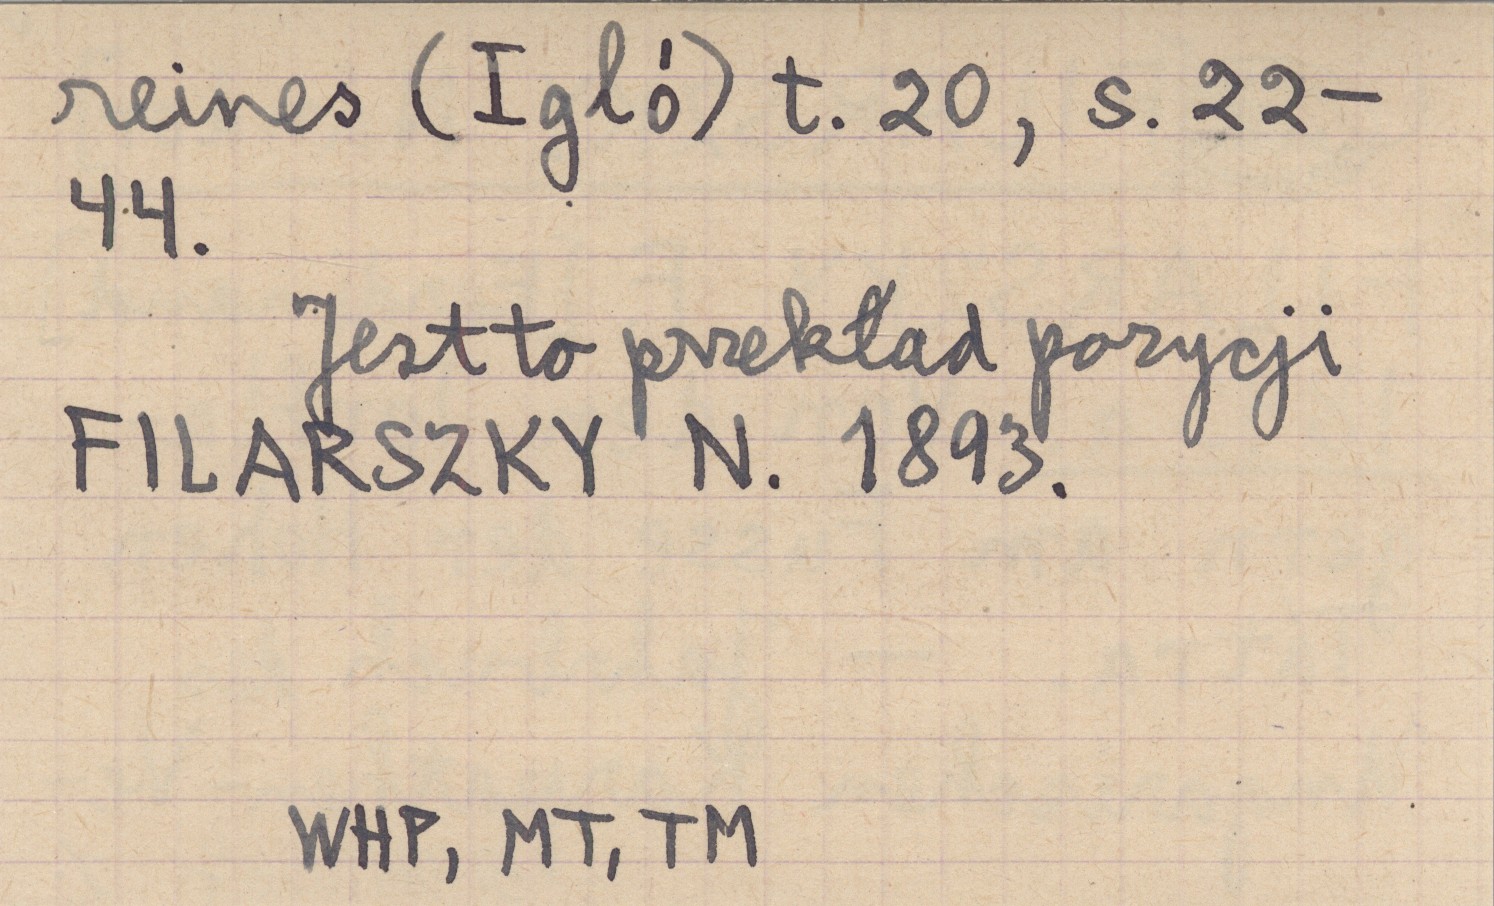 reines (Igló) t. 20, s. 22-
44.
Jest to przekład pozycji
FILARSZKY N. 1893.
WHP, MT, TM